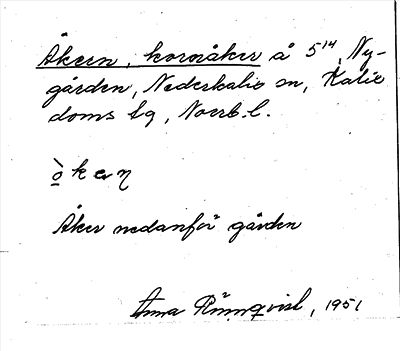 Åkern, kornåker å 5¹⁴, Ny-
gården, Nederkalix sn, Kalix
doms lg, Norrb. l.
ò k e ṇ
Åker nedanför gården
Anna Rönnqvist, 1951